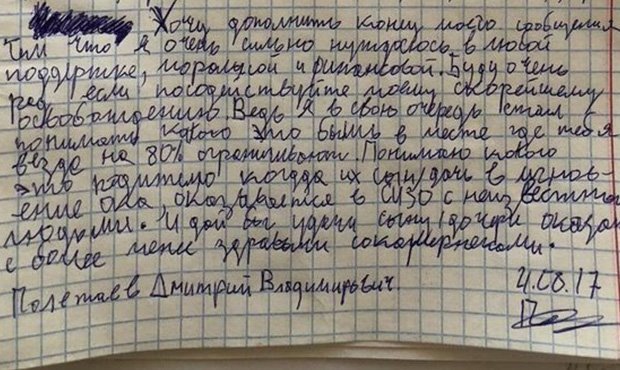 Хочу дополнить конец моего сообщения
тем что я очень сильно нуждаюсь в любой
поддержке, моральной и финансовой. Буду очень
рад если посодействуйте моему скорейшему
освобождению. Ведь я в свою очередь стал
понимать какого это быть в месте где тебя
везде на 80% ограничивают. Понимаю какого
это родителю когда их сын/дочь в мгнов-
ение ока, оказывается в СИЗО с неизвестными
людьми. И дай бог удачи сыну/дочери оказат
с более мене здравыми сокамерниками.
Полетаев Дмитрий Владимирович.
4.08.17